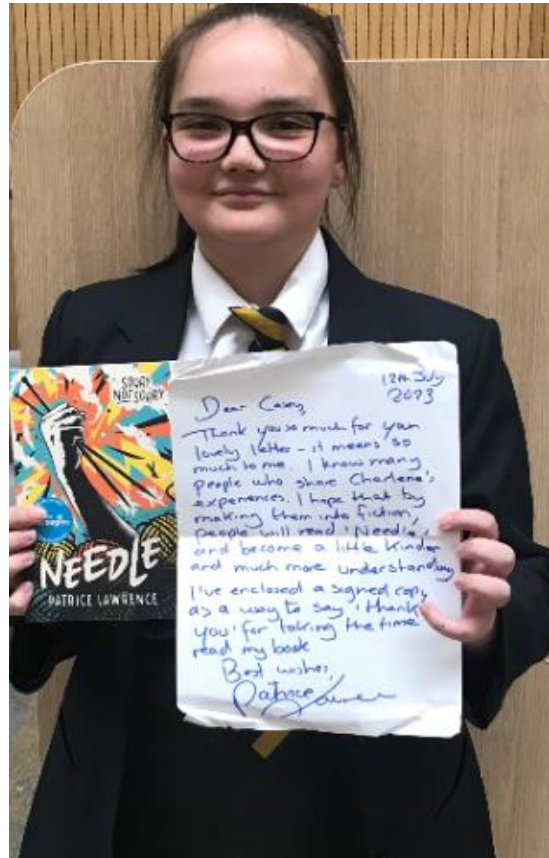 SORRY
NOT SORRY
NEEDLE
PATRICE LAWRENCE
12th July
2023
Dear Casey,
Thank you so much for your
lovely letter - it means so
much to me. I know many
people who share Charlene's
experiences. I hope that by
making them into fiction,
people will read 'Needle',
and become a little kinder
and much more understanding
I've enclosed a signed copy
as a way to say 'thank
you' for taking the time
read my book
Best wishes,
Patrice Lawrence